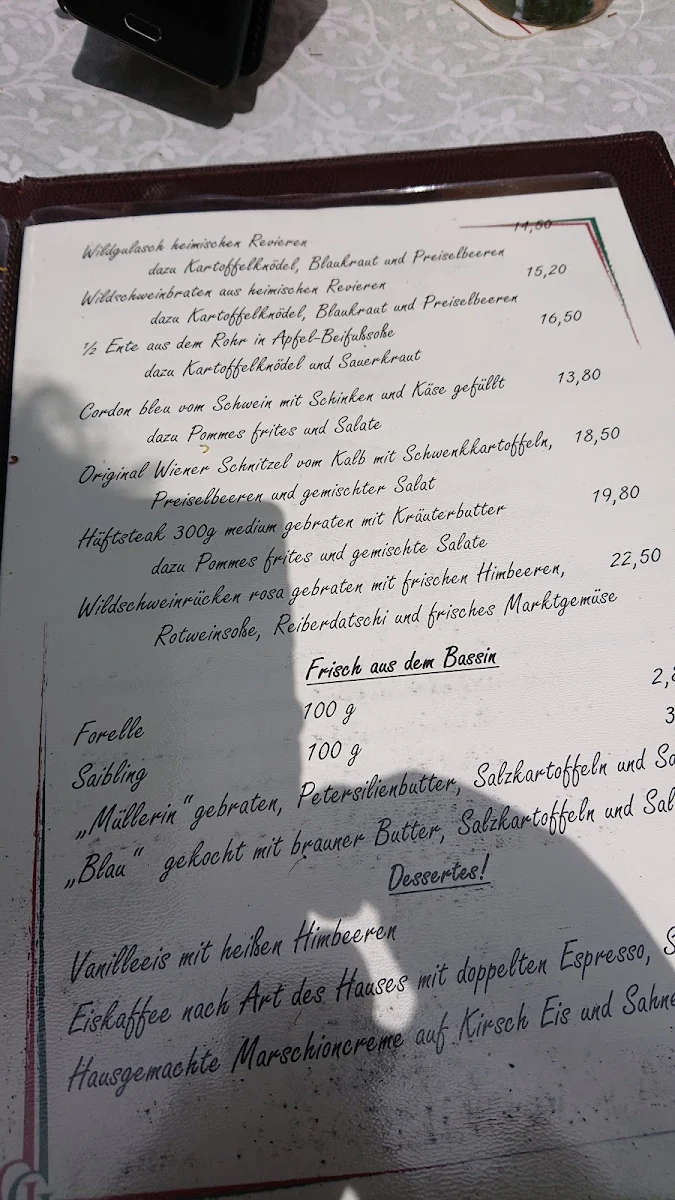 Wildgulasch heimischen Revieren 14,50
dazu Kartoffelknödel, Blaukraut und Preiselbeeren
Wildschweinbraten aus heimischen Revieren 15,20
dazu Kartoffelknödel, Blaukraut und Preiselbeeren
½ Ente aus dem Rohr in Apfel-Beifußsoße 16,50
dazu Kartoffelknödel und Sauerkraut
Cordon bleu vom Schwein mit Schinken und Käse gefüllt 13,80
dazu Pommes frites und Salate
Original Wiener Schnitzel vom Kalb mit Schwenkkartoffeln, 18,50
Preiselbeeren und gemischter Salat
Hüftsteak 300g medium gebraten mit Kräuterbutter 19,80
dazu Pommes frites und gemischte Salate
Wildschweinrücken rosa gebraten mit frischen Himbeeren, 22,50
Rotweinsoße, Reiberdatschi und frisches Marktgemüse
Frisch aus dem Bassin
Forelle 100 g 2,8
Saibling 100 g 3
„Müllerin“ gebraten, Petersilienbutter, Salzkartoffeln und Sa
„Blau“ gekocht mit brauner Butter, Salzkartoffeln und Sal
Dessertes!
Vanilleeis mit heißen Himbeeren
Eiskaffee nach Art des Hauses mit doppelten Espresso, S
Hausgemachte Marschioncreme auf Kirsch Eis und Sahne